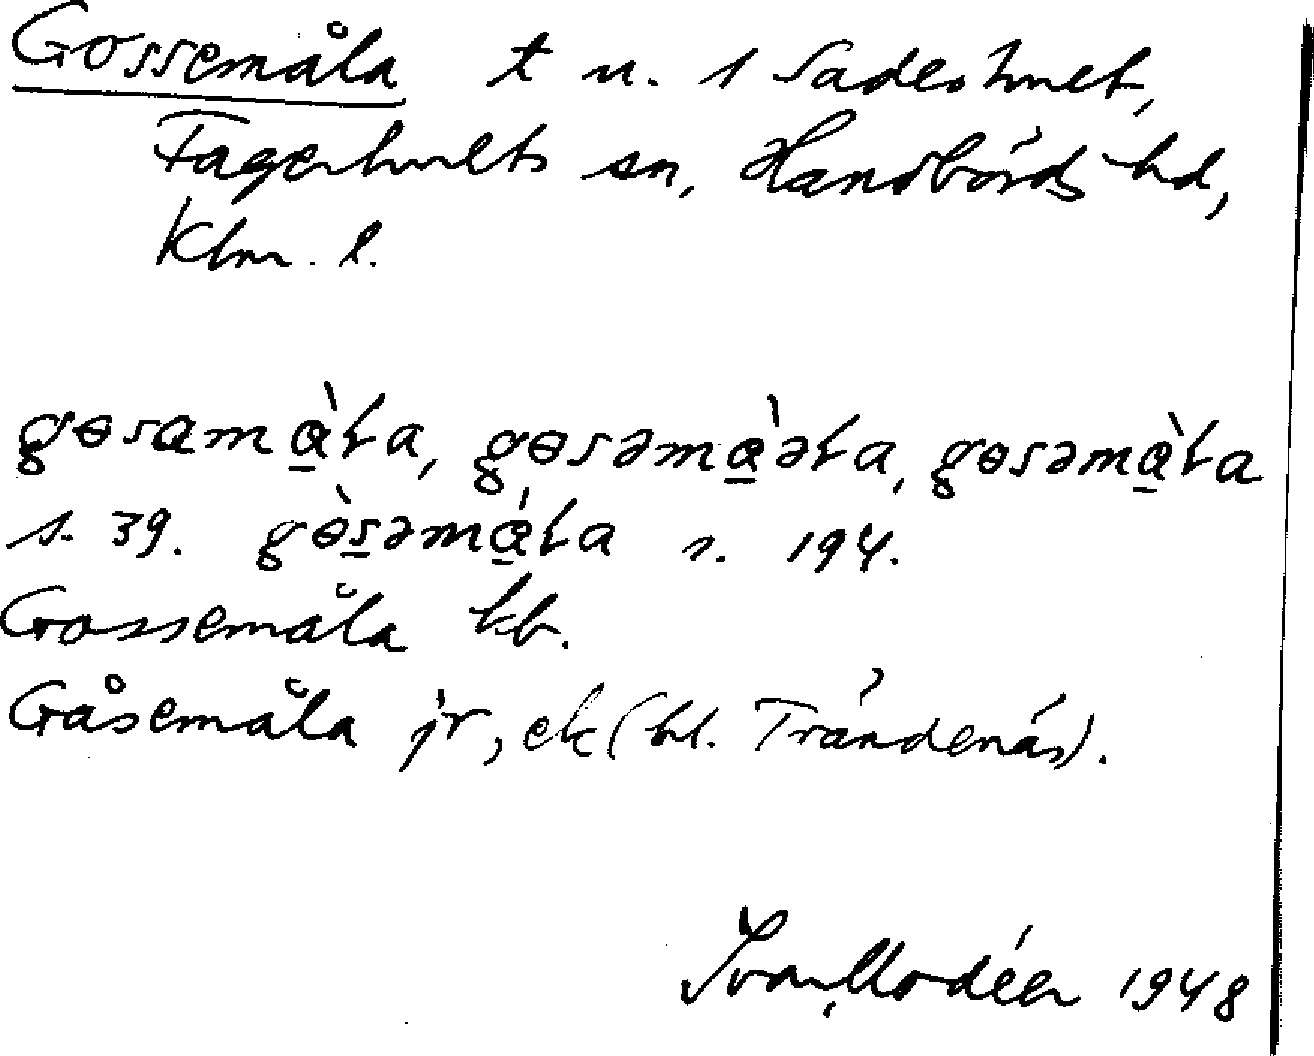 Gossemåla t u. 1 Sadeshult,
Fagerhults sn, Handbörds hd,
Klm. l.
gɵsamɑ̠̀ɫa, gɵsəmɑ̠̀əɫa, gɵsəmɑ̠̀ɫa
s. 39. gɵ̀s̠əmɑ̠́ɫa s. 194.
Gossemåla kb.
Gåsemåla jr, ek (bl. Trändenäs).
Ivar Modéer 1948